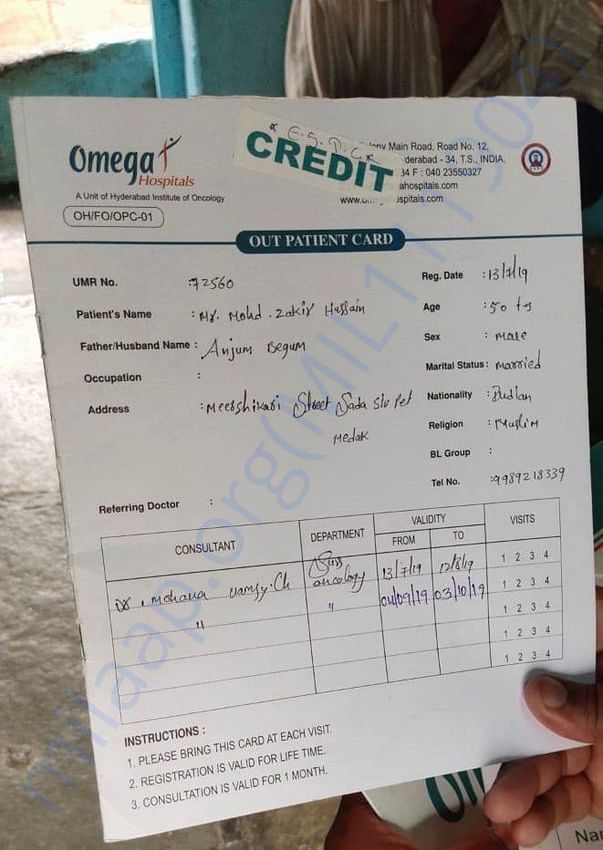 Omega
Hospitals
A Unit of Hyderabad Institute of Oncology
OH/FO/OPC-01
* E.S.I.C *
CREDIT
Main Road, Road No. 12,
derabad - 34, T.S., INDIA.
34 F : 040 23550327
ahospitals.com
OUT PATIENT CARD
UMR No. : 72560
Reg. Date : 13/7/19
Patient's Name : Mr. Mohd. Zakir Hussain
Age : 50 
Father/Husband Name : Anjum Begum
Sex : male
Occupation :
Marital Status : married
Address : Street
Medak
Nationality : Indian
Religion : Muslim
BL Group :
Tel No. : 9989218339
Referring Doctor :
CONSULTANT DEPARTMENT VALIDITY VISITS
FROM TO
Dr. Mohana vamsy.Ch oncology 13/7/19 12/8/19 1 2 3 4
" " 04/09/19 03/10/19 1 2 3 4
1 2 3 4
1 2 3 4
1 2 3 4
INSTRUCTIONS :
1. PLEASE BRING THIS CARD AT EACH VISIT.
2. REGISTRATION IS VALID FOR LIFE TIME.
3. CONSULTATION IS VALID FOR 1 MONTH.
milaap.org(MIL1113904)